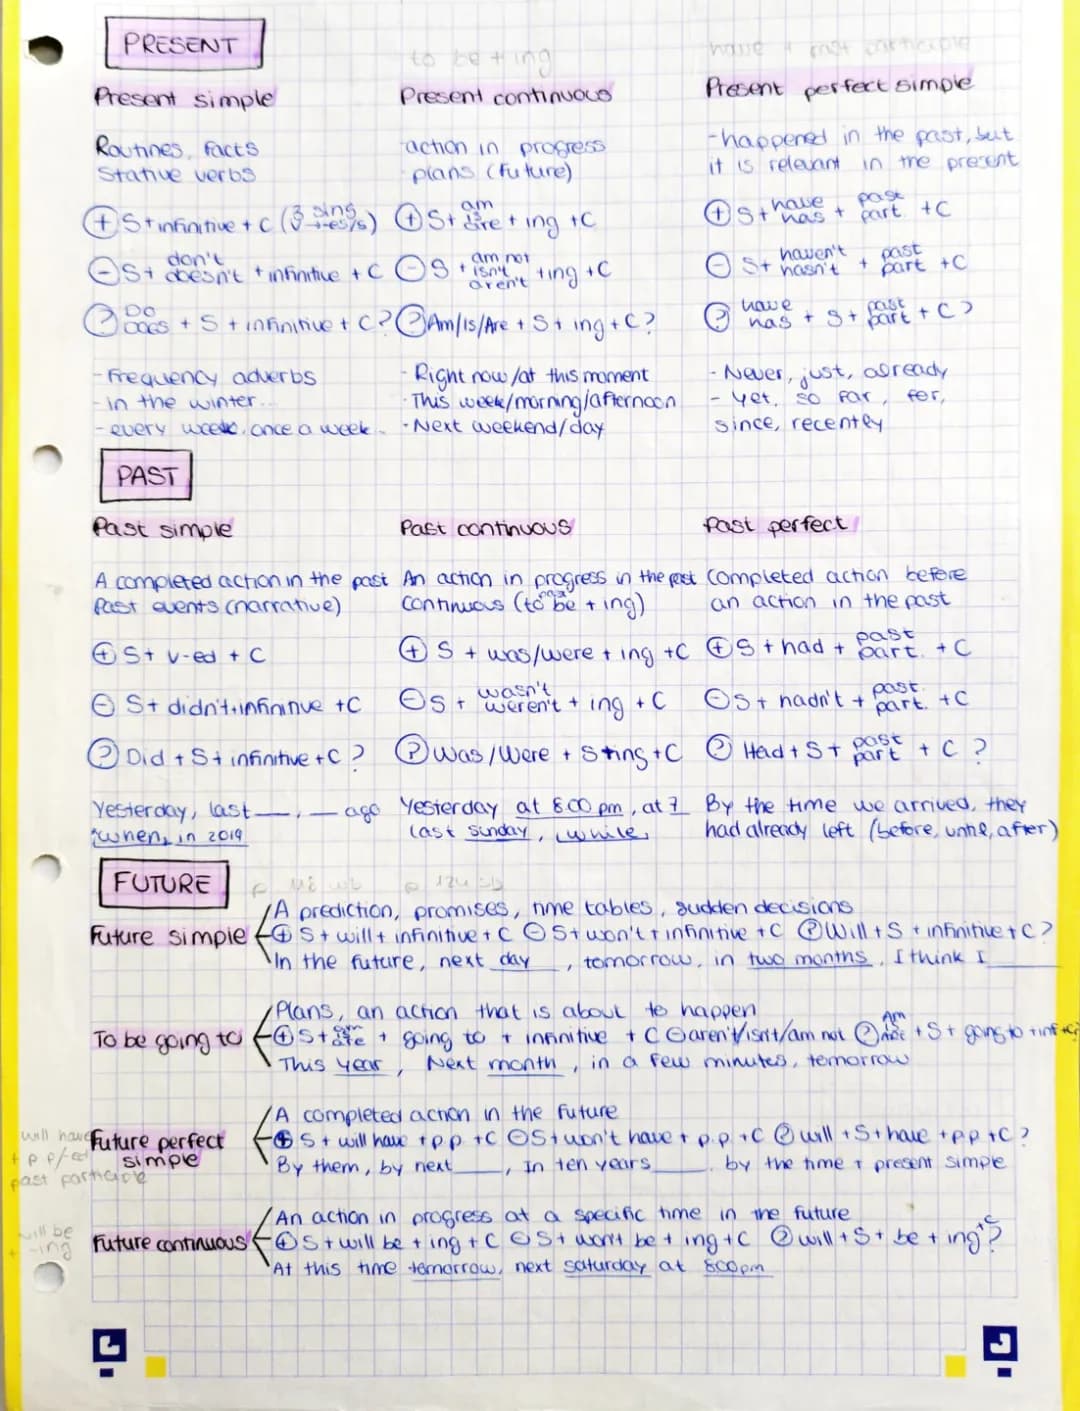 PRESENT
to be + ing
have + past participle
Present simple
Present continuous
Present perfect simple
Routines, facts
Stative verbs
action in progress
plans (future)
-happened in the past, but
it is relevant in the present
+ S + infinitive + C (3 sing → -es/s)
+ S + am is are + ing + C
+ S + have has + past part. + C
- S + don't doesn't + infinitive + C
- S + am not isn't aren't + ing + C
- S + haven't hasn't + past part + C
? Do Does + S + infinitive + C?
? Am/Is/Are + S + ing + C?
? have has + S + past part + C?
- Frequency adverbs
- in the winter...
- every week, once a week..
- Right now/at this moment
- This week/morning/afternoon
- Next weekend/day
- Never, just, already
- yet, so far, for,
since, recently
PAST
Past simple
Past continuous
Past perfect
A completed action in the past
Past events (narrative)
An action in progress in the past
continuous (to be past + ing)
Completed action before
an action in the past
+ S + v-ed + C
+ S + was/were + ing + C
+ S + had + past part. + C
- S + didn't + infininve + C
- S + wasn't weren't + ing + C
- S + hadn't + past part. + C
? Did + S + infinitive + C?
? Was/Were + S + ing + C
? Had + S + past part + C?
Yesterday, last —, — ago
"when, in 2019
Yesterday at 8:00 pm, at 7
last sunday, while
By the time we arrived, they
had already left (before, until, after)
FUTURE
A prediction, promises, time tables, sudden decisions
Future simple + S + will + infinitive + C - S + won't + infinitive + C ? Will + S + infinitive + C?
In the future, next day, tomorrow, in two months, I think I
Plans, an action that is about to happen
To be going to + S + am is are + going to + infinitive + C - aren't/isn't/am not ? Am Is Are + S + going to + inf + C?
This year, Next month, in a few minutes, tomorrow
A completed action in the future
Future perfect simple + S + will have + p.p + C - S + won't have + p.p + C ? will + S + have + p.p + C?
By them, by next, In ten years, by the time + present simple
will have
+ p p/-ed
past participle
An action in progress at a specific time in the future
Future continuous + S + will be + ing + C - S + won't be + ing + C ? will + S + be + ing + C?
At this time tomorrow, next saturday at 8:00pm
will be
+ -ing